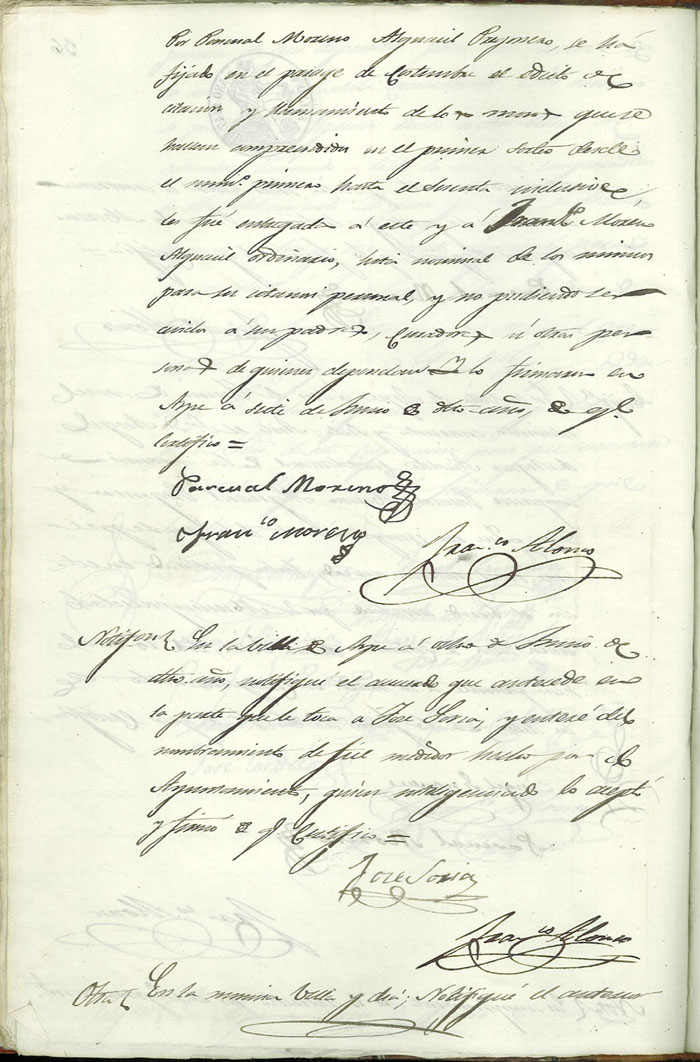 Por Pascual Moreno Alguacil Pregonero, se há
fijado en el parage de Costumbre el edicto de
citacion y llamamiento de los mozos que se
hallan comprendidos en el primer sorteo desde
el num.º primero hasta el sesenta inclusive,
les fué entregada á este y á Fran.co Moreno
Alguacil ordinario, lista nominal de los mismos
para su citacion personal, y no pudiendo ser
avidos á sus padres, Curadores ú otras per-
sonas de quienes dependan y lo firmaron en
Aspe á siete de Junio de dho año, de q.e
Certifico =
Pascual Moreno
Fran.co Moreno
Fran.co Alonso
Notif.on En la Villa de Aspe á ocho de Junio de
dho. año, notifiqué el acuerdo que antecede en
la parte que le toca a José Soria, y enteré del
nombramiento de fiel medidor hecho por el
Ayuntamiento, quien inteligenciado lo aceptó
y firmó de q.e Certifico =
Jose Soria
Fran.co Alonso
Otra En la misma Villa y dia; Notifiqué el anterior